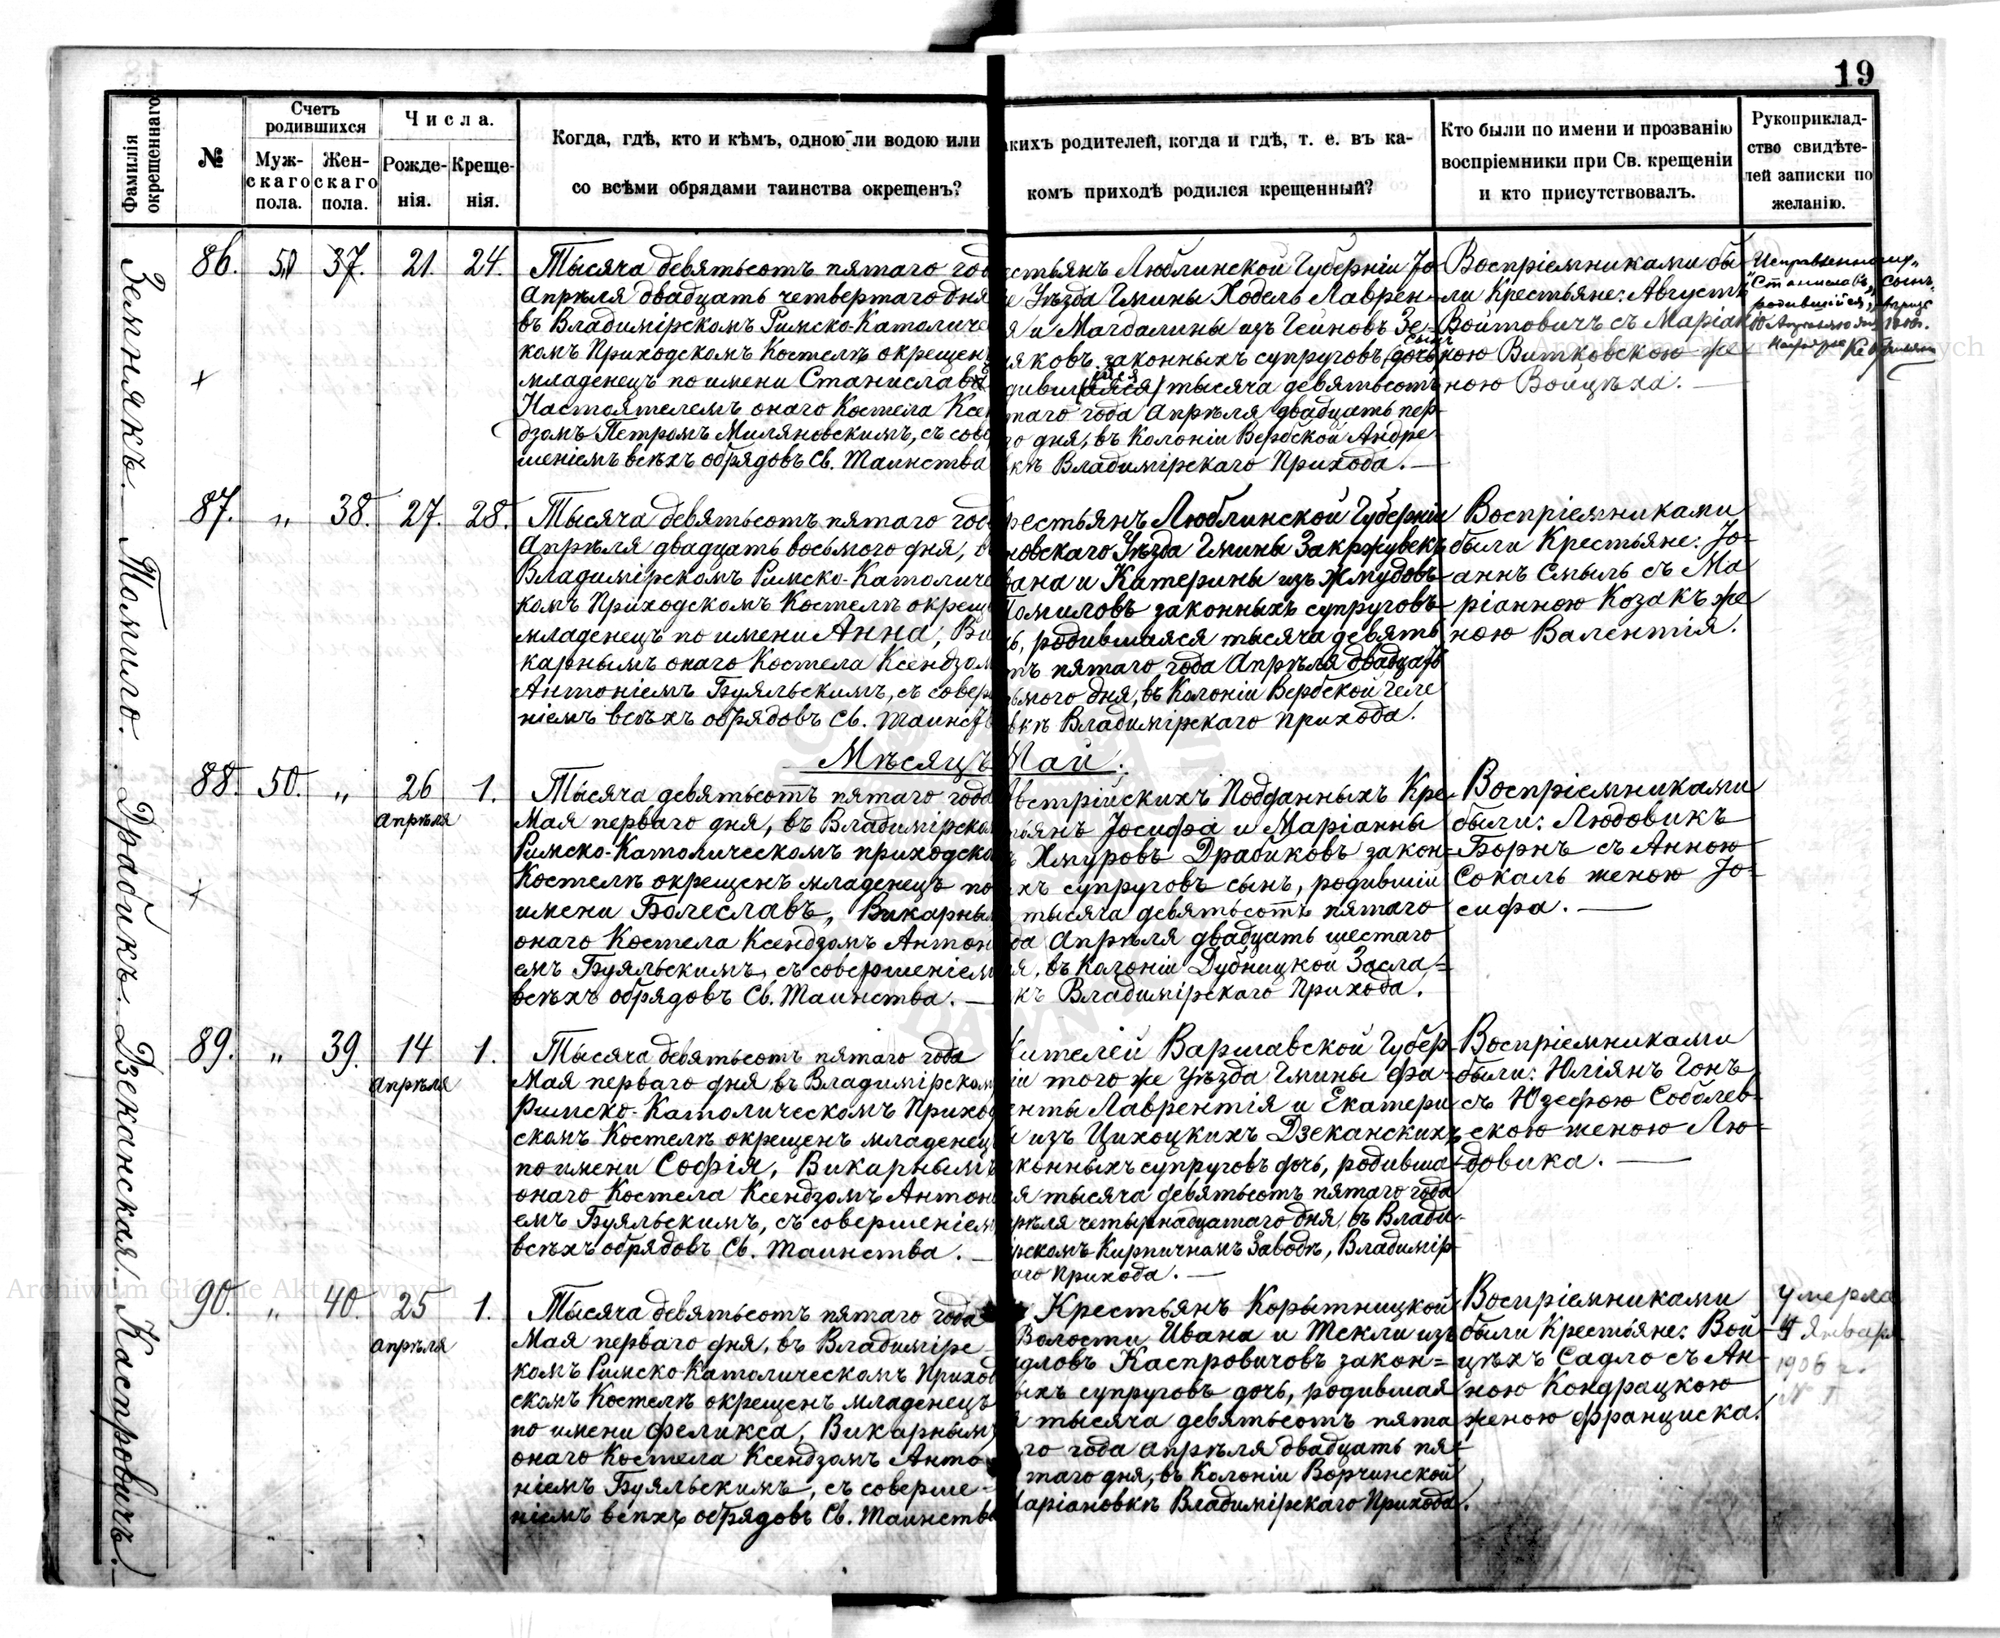 19
Фамилія окрещеннаго.
№
Счетъ родившихся
Мужскаго пола.
Женскаго пола.
Числа.
Рожденія.
Крещенія.
Когда, гдѣ, кто и кѣмъ, одною ли водою или
со всѣми обрядами таинства окрещенъ?
акихъ родителей, когда и гдѣ, т. е. въ ка-
комъ приходѣ родился крещенный?
Кто были по имени и прозванію
воспріемники при Св. крещеніи
и кто присутствовалъ.
Рукоприклад-
ство свидѣте-
лей записки по
желанію.
Земнякъ.
86. 37. 21. 24.
Тысяча девятьсотъ пятаго год
Апрѣля двадцать четвертаго дня
въ Владимірскомъ Римско-Католичес
комъ Приходскомъ Костелѣ окрещен
младенецъ по имени Станиславъ
Настоятелемъ онаго Костела Ксен
дзомъ Петромъ Миляновскимъ, съ совер
шеніемъ всѣхъ обрядовъ Св. Таинства
естьянъ Люблинской Губерніи
Уѣзда Гмины Ходель Лаврен-
я и Магдалины изъ Гейновъ Зе-
яковъ законныхъ супруговъ (дочь) сынъ
тысяча девятьсотъ
таго года Апрѣля двадцать пер-
го дня, въ Колоніи Вербской Андре
вкѣ Владимірскаго Прихода.
Воспріемниками бы
ли Крестьяне: Августъ
Войтовичъ съ Маріан
ною Витковскою же
ною Войцѣха.
Исправленному
"Станиславъ", "сынъ",
родившійся,
+
Томило.
87. " 38. 27. 28.
Тысяча девятьсотъ пятаго год
Апрѣля двадцать восьмого дня, в
Владимірскомъ Римско-Католичес
комъ Приходскомъ Костелѣ окрещ
младенецъ по имени Анна, Ви
карнымъ онаго Костела Ксендзом
Антоніемъ Буяльскимъ, съ совер
ніемъ всѣхъ обрядовъ Св. Таинств
рестьянъ Люблинской Губерніи
новскаго Уѣзда Гмины Закржувекъ
вана и Катерины изъ Жмудовъ
Томиловъ законныхъ супруговъ
ь, родившаяся тысяча девять
тъ пятаго года Апрѣля двадцать
ьмого дня, въ Колоніи Вербской Челе
вкѣ Владимірскаго Прихода.
Воспріемниками
были Крестьяне: Іо-
аннъ Смыль съ Ма
ріанною Козакъ же
ною Валентія.
Мѣсяцъ Май.
Драбикъ.
88. 50. " 26 апрѣля 1.
Тысяча девятьсотъ пятаго года
Мая перваго дня, въ Владимірском
Римско-Католическомъ приходско
Костелѣ окрещенъ младенецъ по
имени Болеславъ, Викарны
онаго Костела Ксендзомъ Антон
емъ Буяльскимъ, съ совершеніем
всѣхъ обрядовъ Св. Таинства.
Австрійскихъ Подданныхъ Кре-
тьянъ Іосифа и Маріанны
Хмуровъ Драбиковъ закон-
ыхъ супруговъ сынъ, родившій
тысяча девятьсотъ пятаго
да Апрѣля двадцать шестаго
я, въ Колоніи Дубницкой Засла-
кѣ Владимірскаго Прихода.
Воспріемниками
были: Людовикъ
Борнъ съ Анною
Сокаль женою Іо-
сифа.
+
Дзеканская.
89. " 39. 14 апрѣля 1.
Тысяча девятьсотъ пятаго года
Мая перваго дня въ Владимірском
Римско-Католическомъ Приход
скомъ Костелѣ окрещенъ младенец
по имени Софія, Викарнымъ
онаго Костела Ксендзомъ Антоні
емъ Буяльскимъ, съ совершеніем
всѣхъ обрядовъ Св. Таинства.
Жителей Варшавской Губер-
ніи того же Уѣзда Гмины Фа-
енты Лаврентія и Екатери
ы изъ Цихоцкихъ Дзеканскихъ
конныхъ супруговъ дочь, родивша-
я тысяча девятьсотъ пятаго года
прѣля четырнадцатаго дня, въ Влади-
ірскомъ Кирпичномъ Заводѣ, Владимір
аго Прихода.
Воспріемниками
были: Юліянъ Гонъ
съ Юзефою Соболев-
скою женою Лю-
довика.
Каспровичъ.
90. " 40. 25 апрѣля 1.
Тысяча девятьсотъ пятаго года
Мая перваго дня, въ Владимірс
комъ Римско Католическомъ Приход
скомъ Костелѣ окрещенъ младенецъ
по имени Феликса, Викарнымъ
онаго Костела Ксендзомъ Анто
ніемъ Буяльскимъ, съ соверше-
ніемъ всѣхъ обрядовъ Св. Таинств
Крестьянъ Корытницкой
Волости Ивана и Теклі изъ
Каспровичовъ закон-
ыхъ супруговъ дочь, родившая
тысяча девятьсотъ пята
го года апрѣля двадцать пя-
таго дня, въ Колоніи Ворчинской
Маріановкѣ Владимірскаго Прихода.
Воспріемниками
были Крестьяне: Вой
цѣхъ Садло съ Ан-
ною Кондрацкою
женою Франциска.
Умерла
Январ
1906 г.
Archiwum Główne Akt Dawnych
Archiwum Główne Akt Dawnych